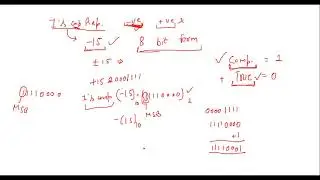 1's comp Rep. -ve +ve x
-15 ✓ 8 bit form ✓ Comp. = 1
± 15 + True = 0
+15 00001111
01110000 1's comp (-15)10 = (11110000)2
MSB MSB
-(15)10
00001111
11110000
+1
11110001